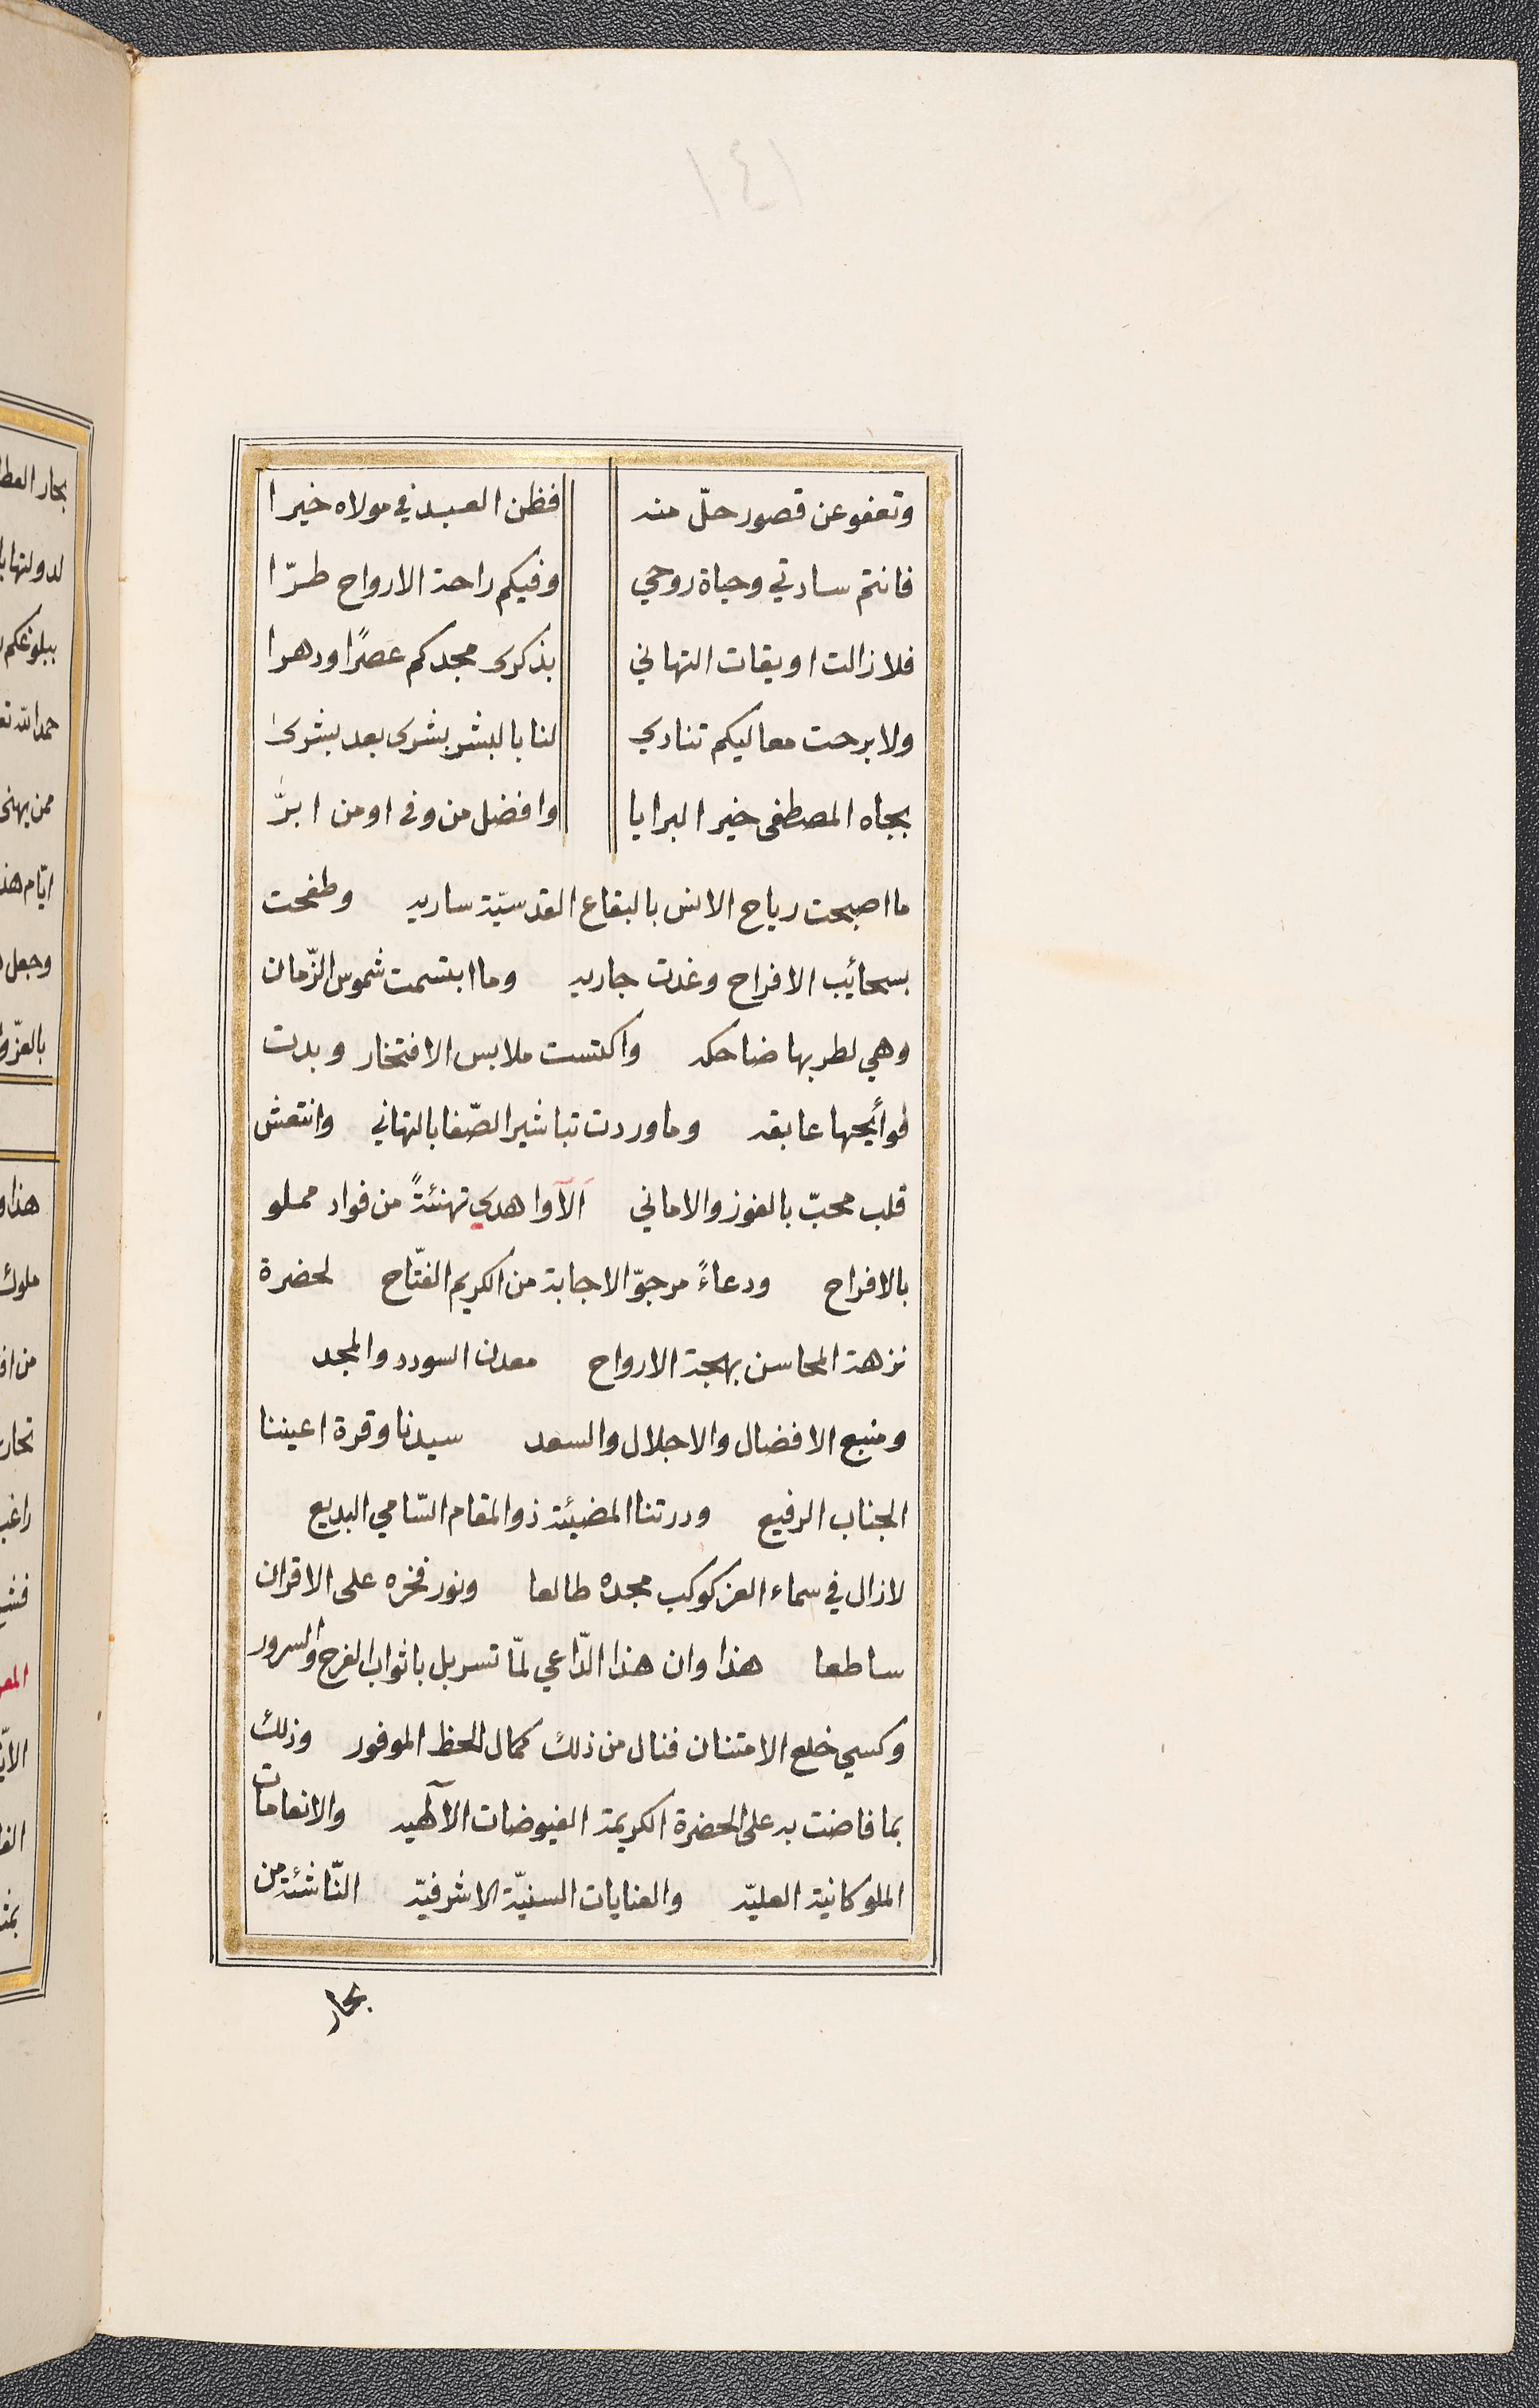 ١٤١
وتعفو عن قصور حلّ منه فظن العبد في مولاه خيرا
فانتم سادتي وحياة روحي وفيكم راحة الارواح طرّا
فلا زالت اويقات التهاني بذكرى مجدكم عصرًا ودهرا
ولا برحت معاليكم تنادي لنا بالبشر بشرى بعد بشرى
بجاه المصطفى خير البرايا وافضل من وفى او من ابرّ
ما اصبحت رياح الانس بالبقاع القدسيّة ساريه وطفحت
بسحائب الافراح وغدت جاريه وما ابتسمت شموس الزّمان
وهي لطربها ضاحكه واكتست ملابس الافتخار وبدت
فوأيحها عابقه وما وردت تباشير الصّفا بالتهاني وانتعش
قلب محبّ بالفوز والاماني الآ واهدي تهنئةً من فواد مملو
بالافراح ودعاءً مرجوّ الاجابة من الكريم الفتّاح لحضرة
نزهة المحاسن بهجة الارواح معدن السودد والمجد
ومنبع الافضال والاجلال والسعد سيدنا وقرة اعيننا
الجناب الرفيع ودرتنا المضيئة ذو المقام السّامي البديع
لازال في سماء العز كوكب مجده طالعا ونور فخره على الاقران
ساطعا هذا وان هذا الدّاعي لمّا تسربل باثواب الفرح والسرور
وكسي خلع الامتنان فنال من ذلك كمال الحظ الموفور وذلك
بما فاضت به على الحضرة الكريمة الفيوضات الآلهيه والانعامات
الملوكانية العليّه والعنايات السنيّة الاشرفيّه النّاشئة من
بحار